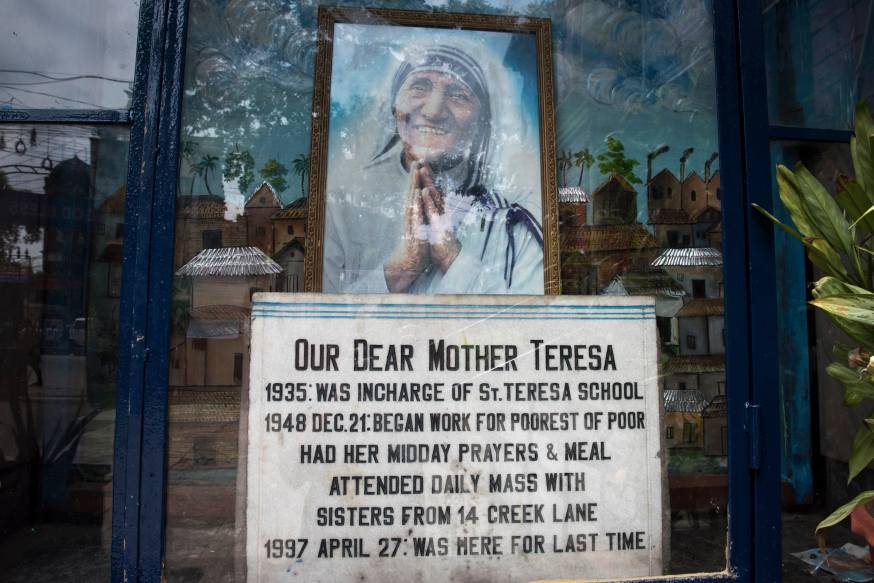 OUR DEAR MOTHER TERESA
1935: WAS INCHARGE OF ST. TERESA SCHOOL
1948 DEC. 21: BEGAN WORK FOR POOREST OF POOR
HAD HER MIDDAY PRAYERS & MEAL
ATTENDED DAILY MASS WITH
SISTERS FROM 14 CREEK LANE
1997 APRIL 27: WAS HERE FOR LAST TIME